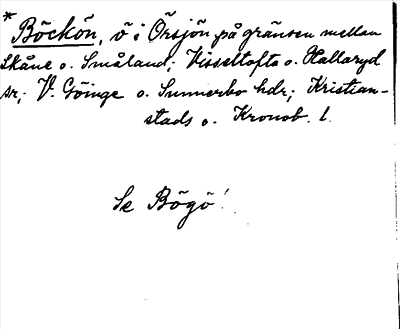 * Böckön, ö i Örsjön på gränsen mellan
Skåne o. Småland; Visseltofta o. Hallaryd
snr; V. Göinge o. Sunnerbo hdr; Kristian-
stads o. Kronob. l.
Se Bögö!